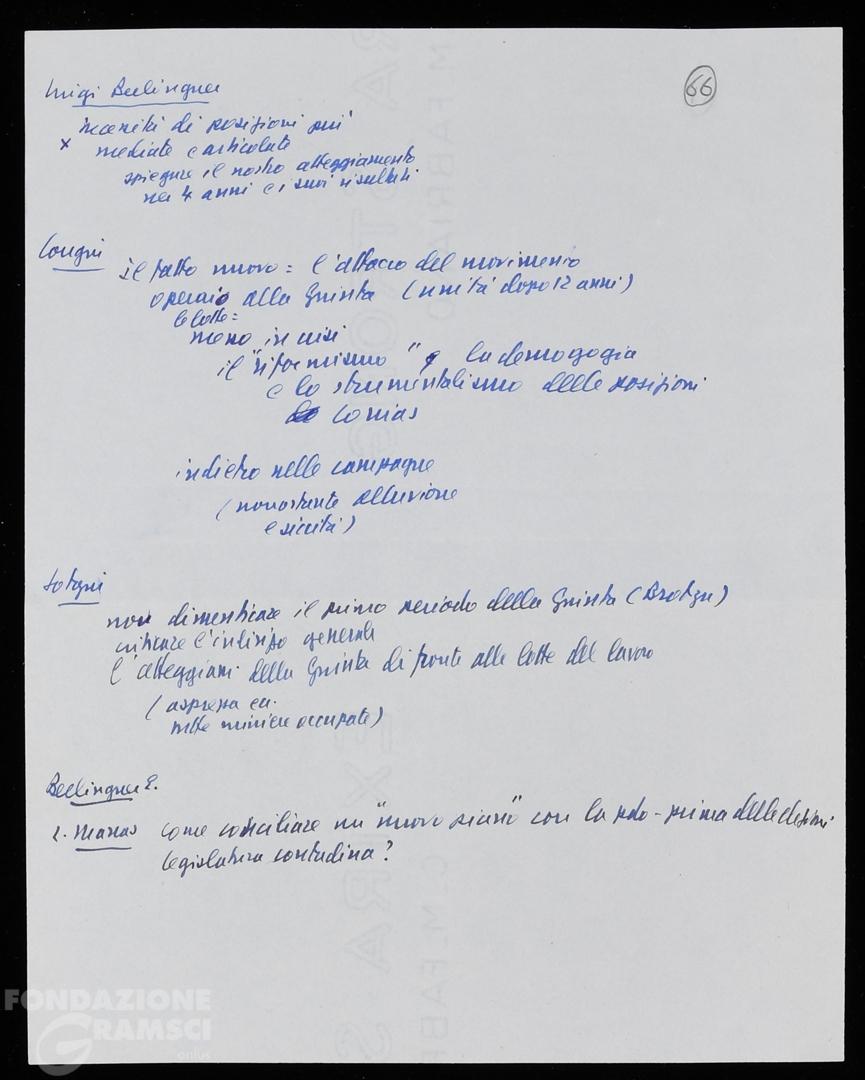 66
Luigi Berlinguer
necessità di posizioni più
x mediate e articolate
spiegare il nostro atteggiamento
nei 4 anni e i suoi risultati
Congiu il fatto nuovo = l'attacco del movimento
operaio alla Giunta (unità dopo 12 anni)
le lotte =
meno in crisi
il "riformismo" e la demagogia
e lo strumentalismo delle posizioni
indietro nelle campagne
(nonostante alluvione
e siccità)
Sotgiu
non dimenticare il primo periodo della Giunta (Brotzu)
criticare l'indirizzo generale
l'atteggiam. della Giunta di fronte alle lotte del lavoro
(asprezza ecc.
nelle miniere occupate)
Berlinguer E.
come conciliare un "nuovo piano" con la
legislatura contadina?
FONDAZIONE
GRAMSCI
onlus